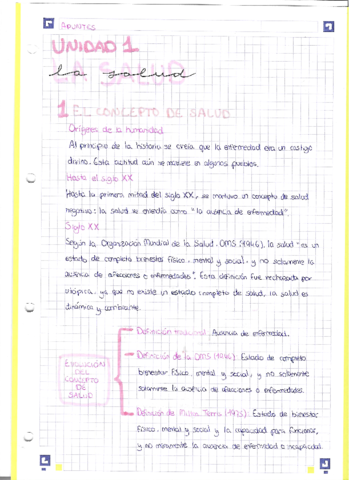 APUNTES
UNIDAD 1
LA SALUD
la salud
1 EL CONCEPTO DE SALUD
Orígenes de la humanidad
Al principio de la historia se creía que la enfermedad era un castigo
divino. Esta actitud aún se mantiene en algunos pueblos.
Hasta el siglo XX
Hasta la primera mitad del siglo XX, se mantuvo un concepto de salud
negativo: la salud se entendía como "la ausencia de enfermedad".
Siglo XX
Según la Organización Mundial de la Salud, OMS (1946), la salud "es un
estado de completo bienestar físico, mental y social, y no solamente la
ausencia de afecciones o enfermedades". Esta definición fue rechazada por
utópica, ya que no existe un estado completo de salud, la salud es
dinámica y cambiante.
EVOLUCIÓN
DEL
CONCEPTO
DE
SALUD
Definición tradicional: Ausencia de enfermedad.
Definición de la OMS (1946): Estado de completo
bienestar físico, mental y social, y no solamente
la ausencia de afecciones o enfermedades.
Definición de Milton Terris (1975): Estado de bienestar
físico, mental y social y la capacidad para funcionar,
y no meramente la ausencia de enfermedad o incapacidad.